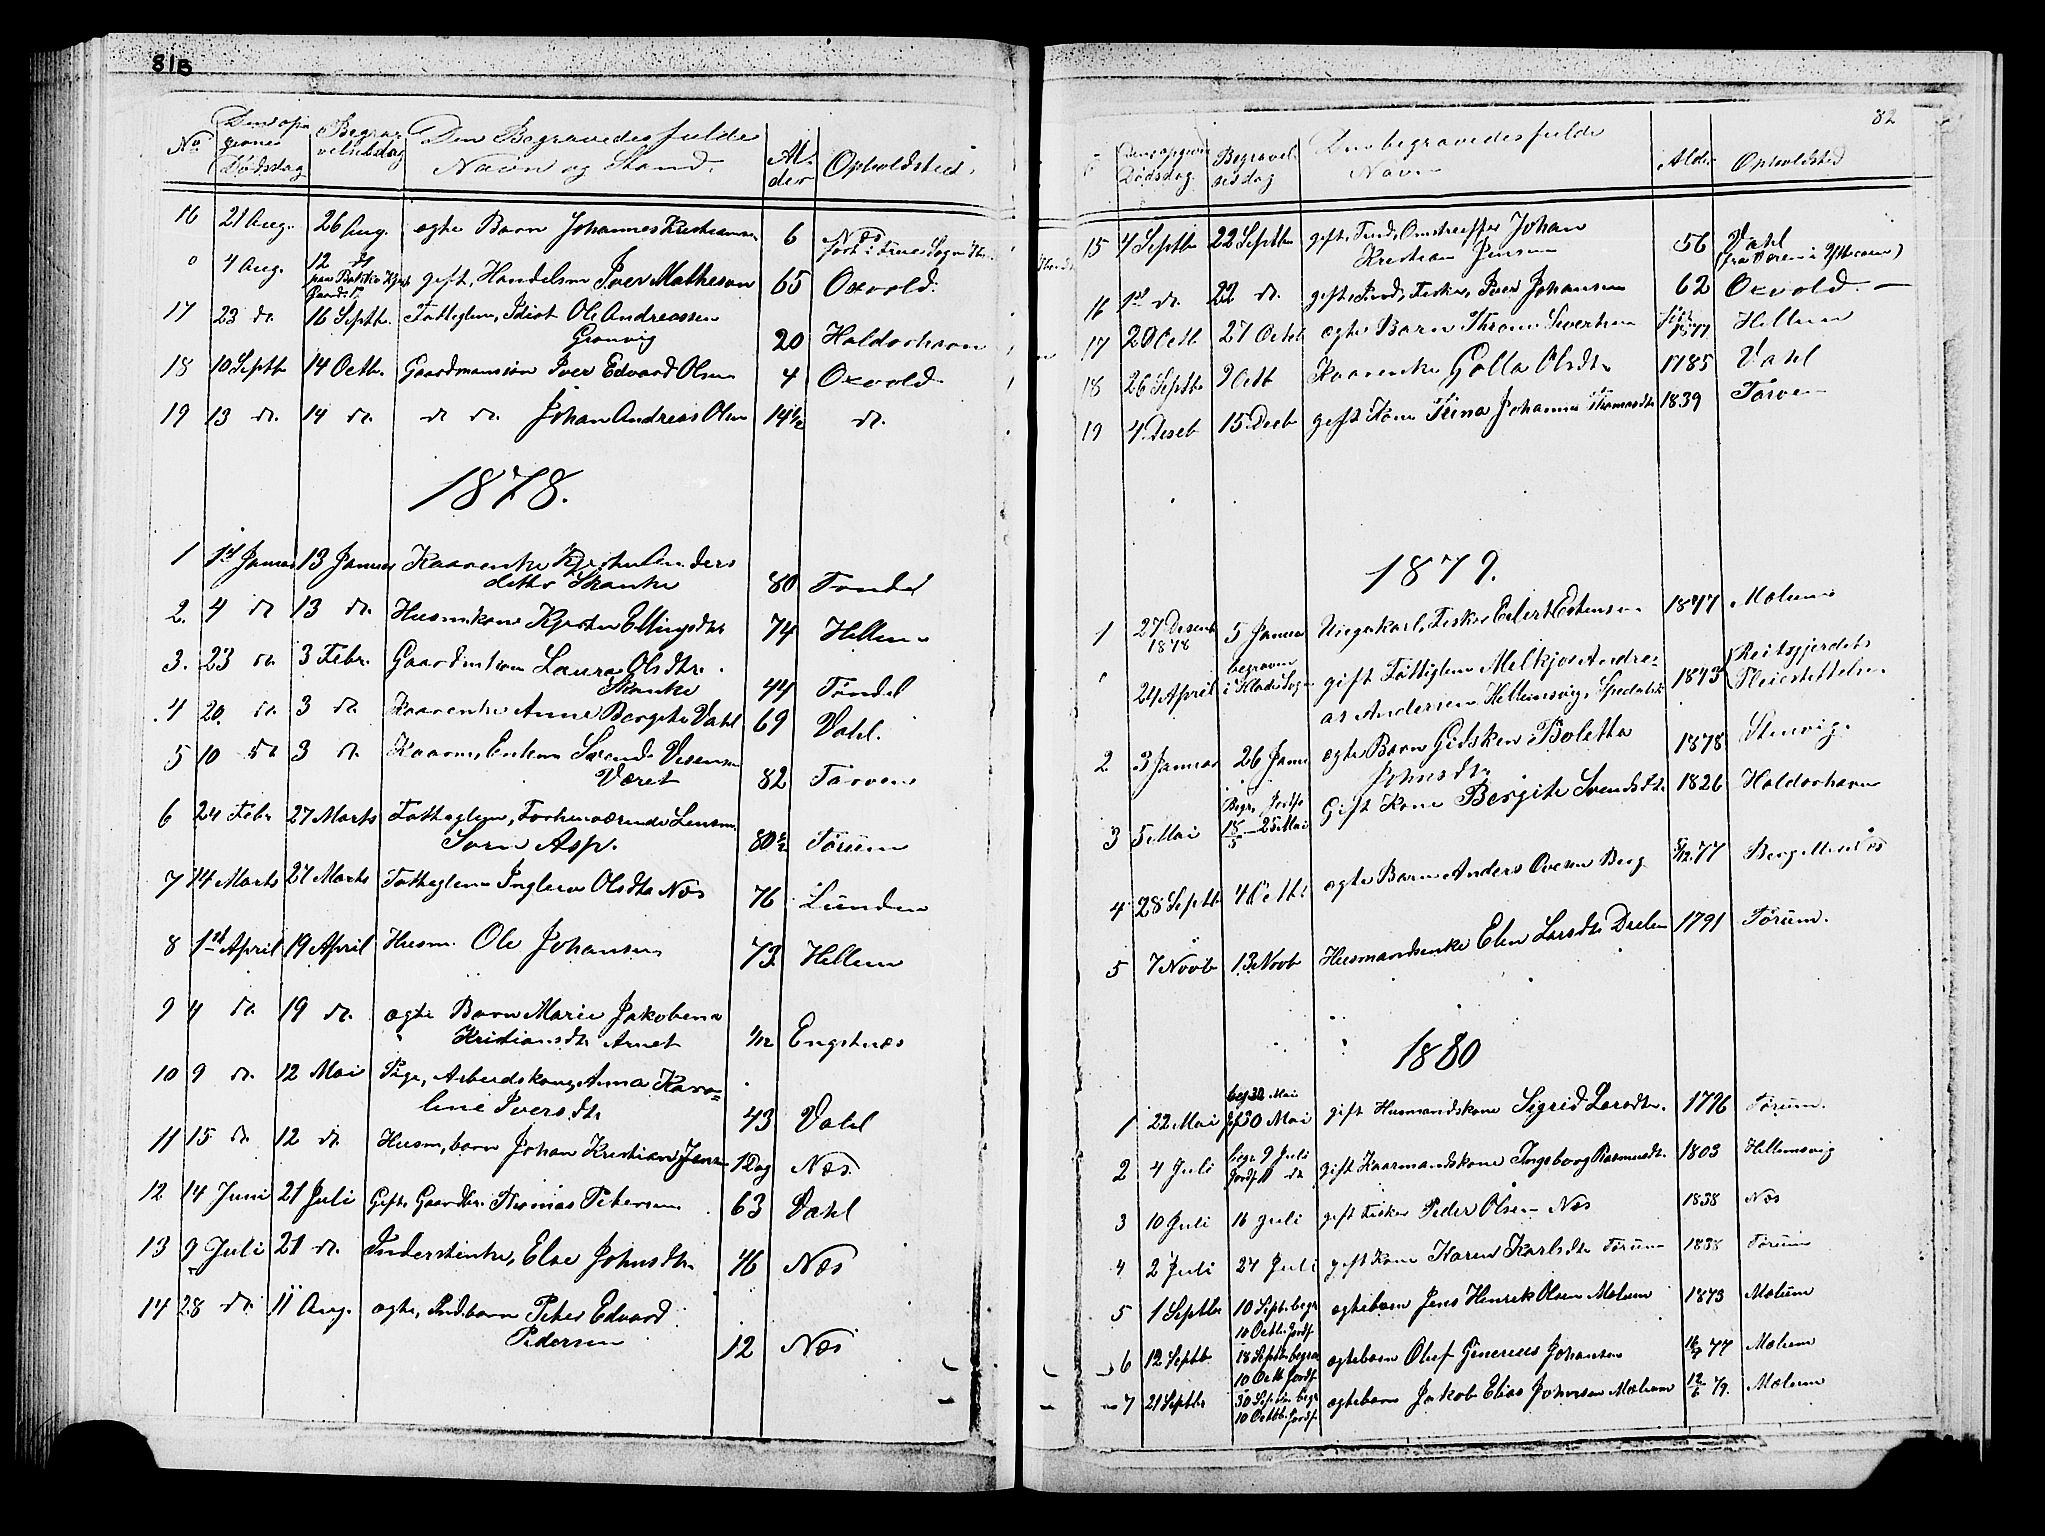 81B
No Den opgivne Dødsdag Begravelsesdag Den Begravedes fulde Navn og Stand. Alder Opholdsted.
16 21 Aug. 26 Aug. ægte Barn Johannes Kristiansen 6 Næs
0 4 Aug. 12 gift, Handelsm Iver Mathesen 65 Oxvold.
17 23 do. 16 Septb. Fattiglem, Idiot Ole Andreassen
Grønvig 20 Haldorhavn
18 10 Septb 14 Octb. Gaardmansøn Iver Edvard Olsen 4 Oxvold
19 13 do. 14 do. do do. Johan Andreas Olsen 14½ do.
1878.
1 1st Januar 13 Januar Kaarenke Kjersten Anders
datter Skanke 80 Tondel
2. 4 do 13 do. Husmkone Kjersten Ellingsdtr 74 Hellem
3. 23 do 3 Febr. Gaard Laura Olsdtr.
Skanke 44 Tøndel
4 20. do 3 do. Kaarenke Anne Bergitte Vahl 69 Vahl.
5 10 do 3 do. Kaarm, Enkem Svend
Været 82 Tarven
6 24 Febr 27 Marts Fattiglem, Forhenværende Lensm.
Sørn Asp. 80 Tørum
7 14 Marts 27 Marts Fattiglem Ingleiv Olsdtr Næs 76 Lunden
8 1st April 19 April Husm. Ole Johansen 73 Hellem
9 4 do. 19 do. ægte Barn Marie Jakobena
Kristiansdtr Arnet 1/12 Engstnæs
10 9 do. 12 Mai Pige, Arbeidskone, Anna Karo=
line Iversdtr 43 Vahl
11 15 do 12 do Husm, barn Johan Kristian Jensen 1 Dag Næs.
12 14 Juni 21 Juli Gifte Gaardbr. Thomas Petersen 63 Vahl
13 9 Juli 21 do. Inderstenke, Else Johnsdtr. 46 Næs
14 28 do. 11 Aug. ægte, Indbarn Peter Edvard
Pedersen 12 Næs
82
Den opgivne Dødsdag Begravelsesdag Den begravedes fulde Navn Alder Opholdsted
15 4 Septb 22 Septb gift, Ind, Omstreiffer Johan
Kristian Jensen 56 Vahl
16 1st do. 22 do. gift, Ind, Fisker, Iver Johansen 62 Oxvold
17 20 Octb 27 Octb ægte Barn Thrine Sivertsen 1877 Hellem
18 26 Septb 9 Octb Kaarenke Golla Olsdtr 1785 Vahl
19 4 Deseb 15 Deeb gift Kone Trina Johanna Thomasdtr 1839 Tarven
1879.
1 27 Desemb 1878 5 Januar Ungekarl, Fisker Eilert Estensen 1847 Mælum
24 April begraven i Klade Sogn gift Fattiglem Melkjor Andre=
as Andersen Hellemsvig, Spedalsk 1843 Reitgjerdets
Pleiestiftelse
2 3 Januar 26 Janu ægte Barn Gidsken Boletta
Johnsdtr 1878 Stenvig.
3 5 Mai Begr. Jordf. 18/5 - 25 Mai Gift Kone Bergite Svendsdtr 1826 Haldorhavn
4 28 Septb 4 Octb ægte Barn Anders Ovesen Berg 5/12 77 Berg
5 7 Novb 13 Novb Husmandsenke Elen Larsdtr 1791 Tørum.
1880
1 22 Mai 30 Mai gift Husmandskone Sigrid Larsdtr. 1796 Tørum.
2 4 Juli begr 9 Juli Jordf. 11 do gift Kaarmandskone Ingeborg Rasmusdtr. 1803 Hellemsvig
3 10 Juli 16 Juli gift Fisker Peder Olsen Næs 1838 Næs
4 2 Juli 24 Juli gift Kone Karen Karlsdtr Tørum 1838 Tørum
5 1 Septbr 10 Septb. begr 10 Octb. Jordf. ægtebarn Jens Henrik Olsen Mælum 1873 Mælum
6 12 Septb. 18 Septb begra 10 Octb Jordf. ægtebarn Oluf Johansen 77 Mælum
7 21 Septbr 30 Septb. begr 10 Octb. Jordf. ægtebarn Jakob Elias Johnsen Mælum 12/6 79. Mælum